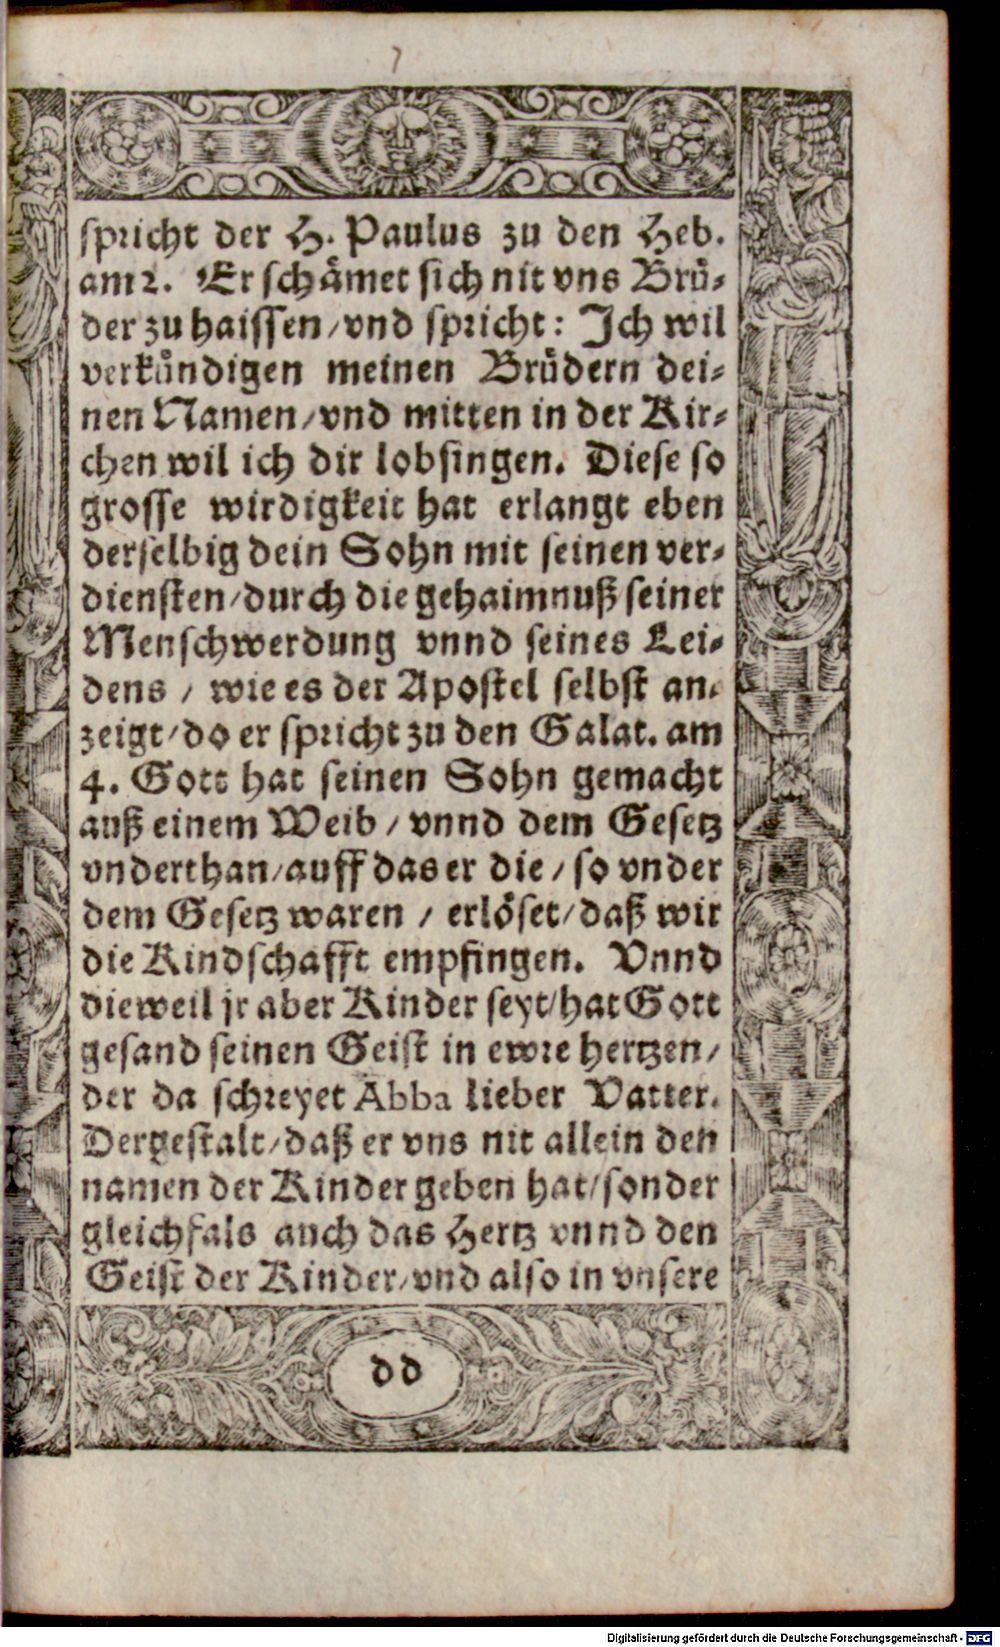 7
spricht der H. Paulus zu den Heb.
am 2. Er schämet sich nit vns Brü-
der zu haissen/vnd spricht: Ich wil
verkündigen meinen Brüdern dei-
nen Namen/vnd mitten in der Kir-
chen wil ich dir lobsingen. Diese so
grosse wirdigkeit hat erlangt eben
derselbig dein Sohn mit seinen ver-
diensten/durch die gehaimnuß seiner
Menschwerdung vnnd seines Lei-
dens / wie es der Apostel selbst an-
zeigt/do er spricht zu den Galat. am
4. Gott hat seinen Sohn gemacht
auß einem Weib / vnnd dem Gesetz
vnderthan/auff das er die / so vnder
dem Gesetz waren / erlöset/daß wir
die Kindschafft empfingen. Vnnd
dieweil jr aber Kinder seyt/hat Gott
gesand seinen Geist in ewre hertzen/
der da schreyet Abba lieber Vatter.
Dergestalt/daß er vns nit allein den
namen der Kinder geben hat/sonder
gleichfals auch das Hertz vnnd den
Geist der Kinder/vnd also in vnsere
dd
Digitalisierung gefördert durch die Deutsche Forschungsgemeinschaft - DFG